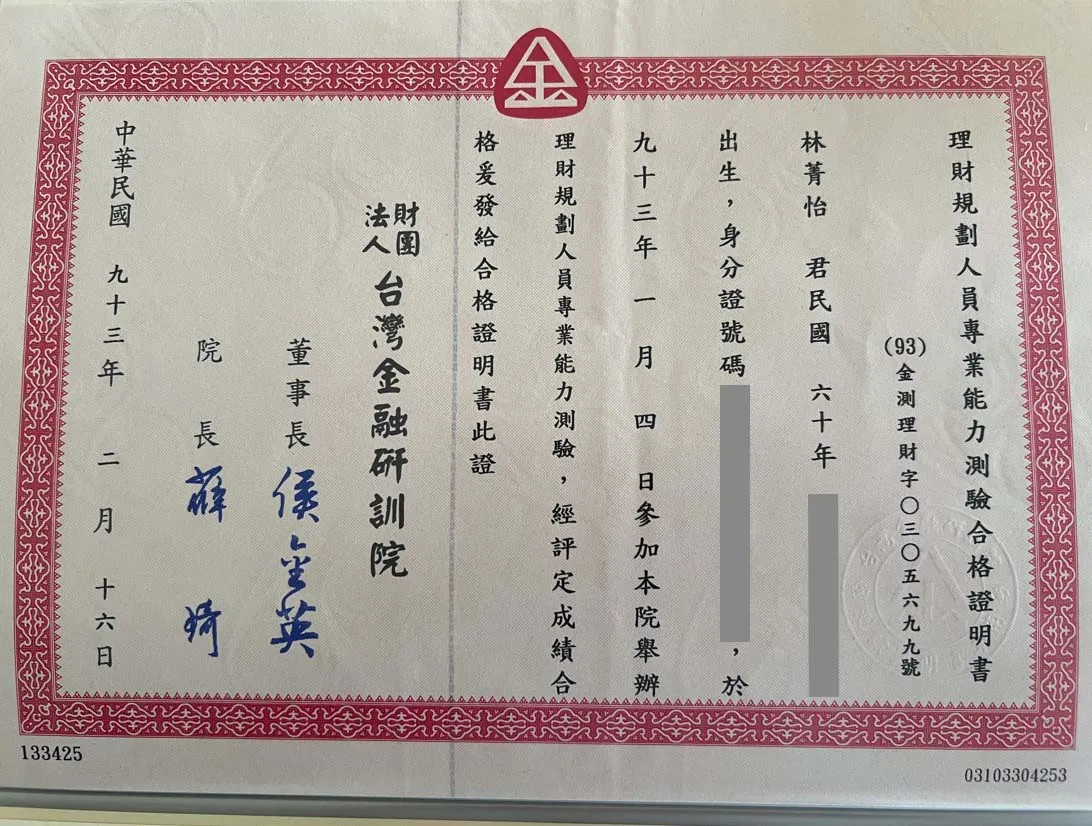 金
理財規劃人員專業能力測驗合格證明書
(93)金測理財字〇三〇五六九九號
林菁怡 君民國 六十年
出生，身分證號碼 ，於
九十三年 一 月 四 日參加本院舉辦
理財規劃人員專業能力測驗，經評定成績合
格爰發給合格證明書此證
財團法人 台灣金融研訓院
董事長 侯金英
院 長 薛琦
中華民國 九十三年 二 月 十六日
133425
03103304253